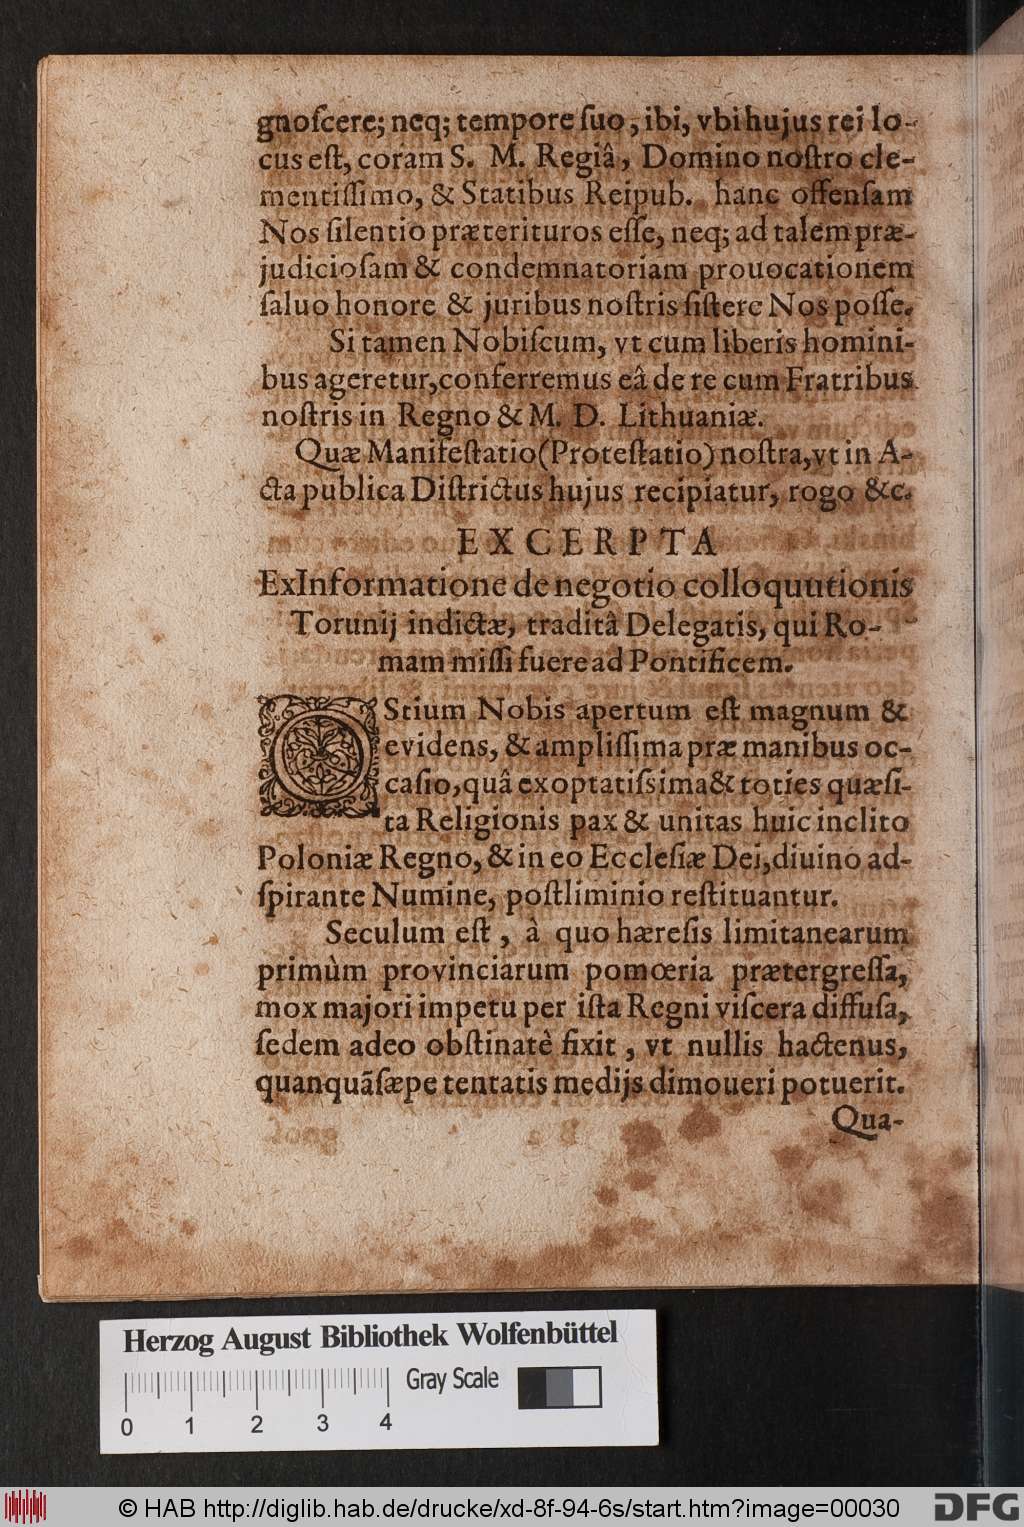 gnoſcere; neq; tempore ſuo, ibi, vbi hujus rei lo-
cus eſt, coram S. M. Regiâ, Domino noſtro cle-
mentiſſimo, & Statibus Reipub. hanc offenſam
Nos ſilentio præterituros eſſe, neq; ad talem præ-
judicioſam & condemnatoriam prouocationem
ſaluo honore & juribus noſtris ſiſtere Nos poſſe.
Si tamen Nobiſcum, vt cum liberis homini-
bus ageretur, conferremus eâ de re cum Fratribus
noſtris in Regno & M. D. Lithuaniæ.
Quæ Manifeſtatio (Proteſtatio) noſtra, vt in A-
cta publica Diſtrictus hujus recipiatur, rogo &c.
EXCERPTA
Ex Informatione de negotio colloquutionis
Torunij indictæ, traditâ Delegatis, qui Ro-
mam miſſi fuere ad Pontificem.
OStium Nobis apertum eſt magnum &
evidens, & ampliſſima præ manibus oc-
caſio, quâ exoptatiſsima & toties quæſi-
ta Religionis pax & unitas huic inclito
Poloniæ Regno, & in eo Eccleſiæ Dei, diuino ad-
ſpirante Numine, poſtliminio reſtituantur.
Seculum eſt, â quo hæreſis limitanearum
primùm provinciarum pomœria prætergreſſa,
mox majori impetu per iſta Regni viſcera diffuſa,
ſedem adeo obſtinatè fixit, vt nullis hactenus,
quanquã ſæpe tentatis medijs dimoueri potuerit.
Qua-
Herzog August Bibliothek Wolfenbüttel
Gray Scale
0 1 2 3 4
© HAB http://diglib.hab.de/drucke/xd-8f-94-6s/start.htm?image=00030
DFG